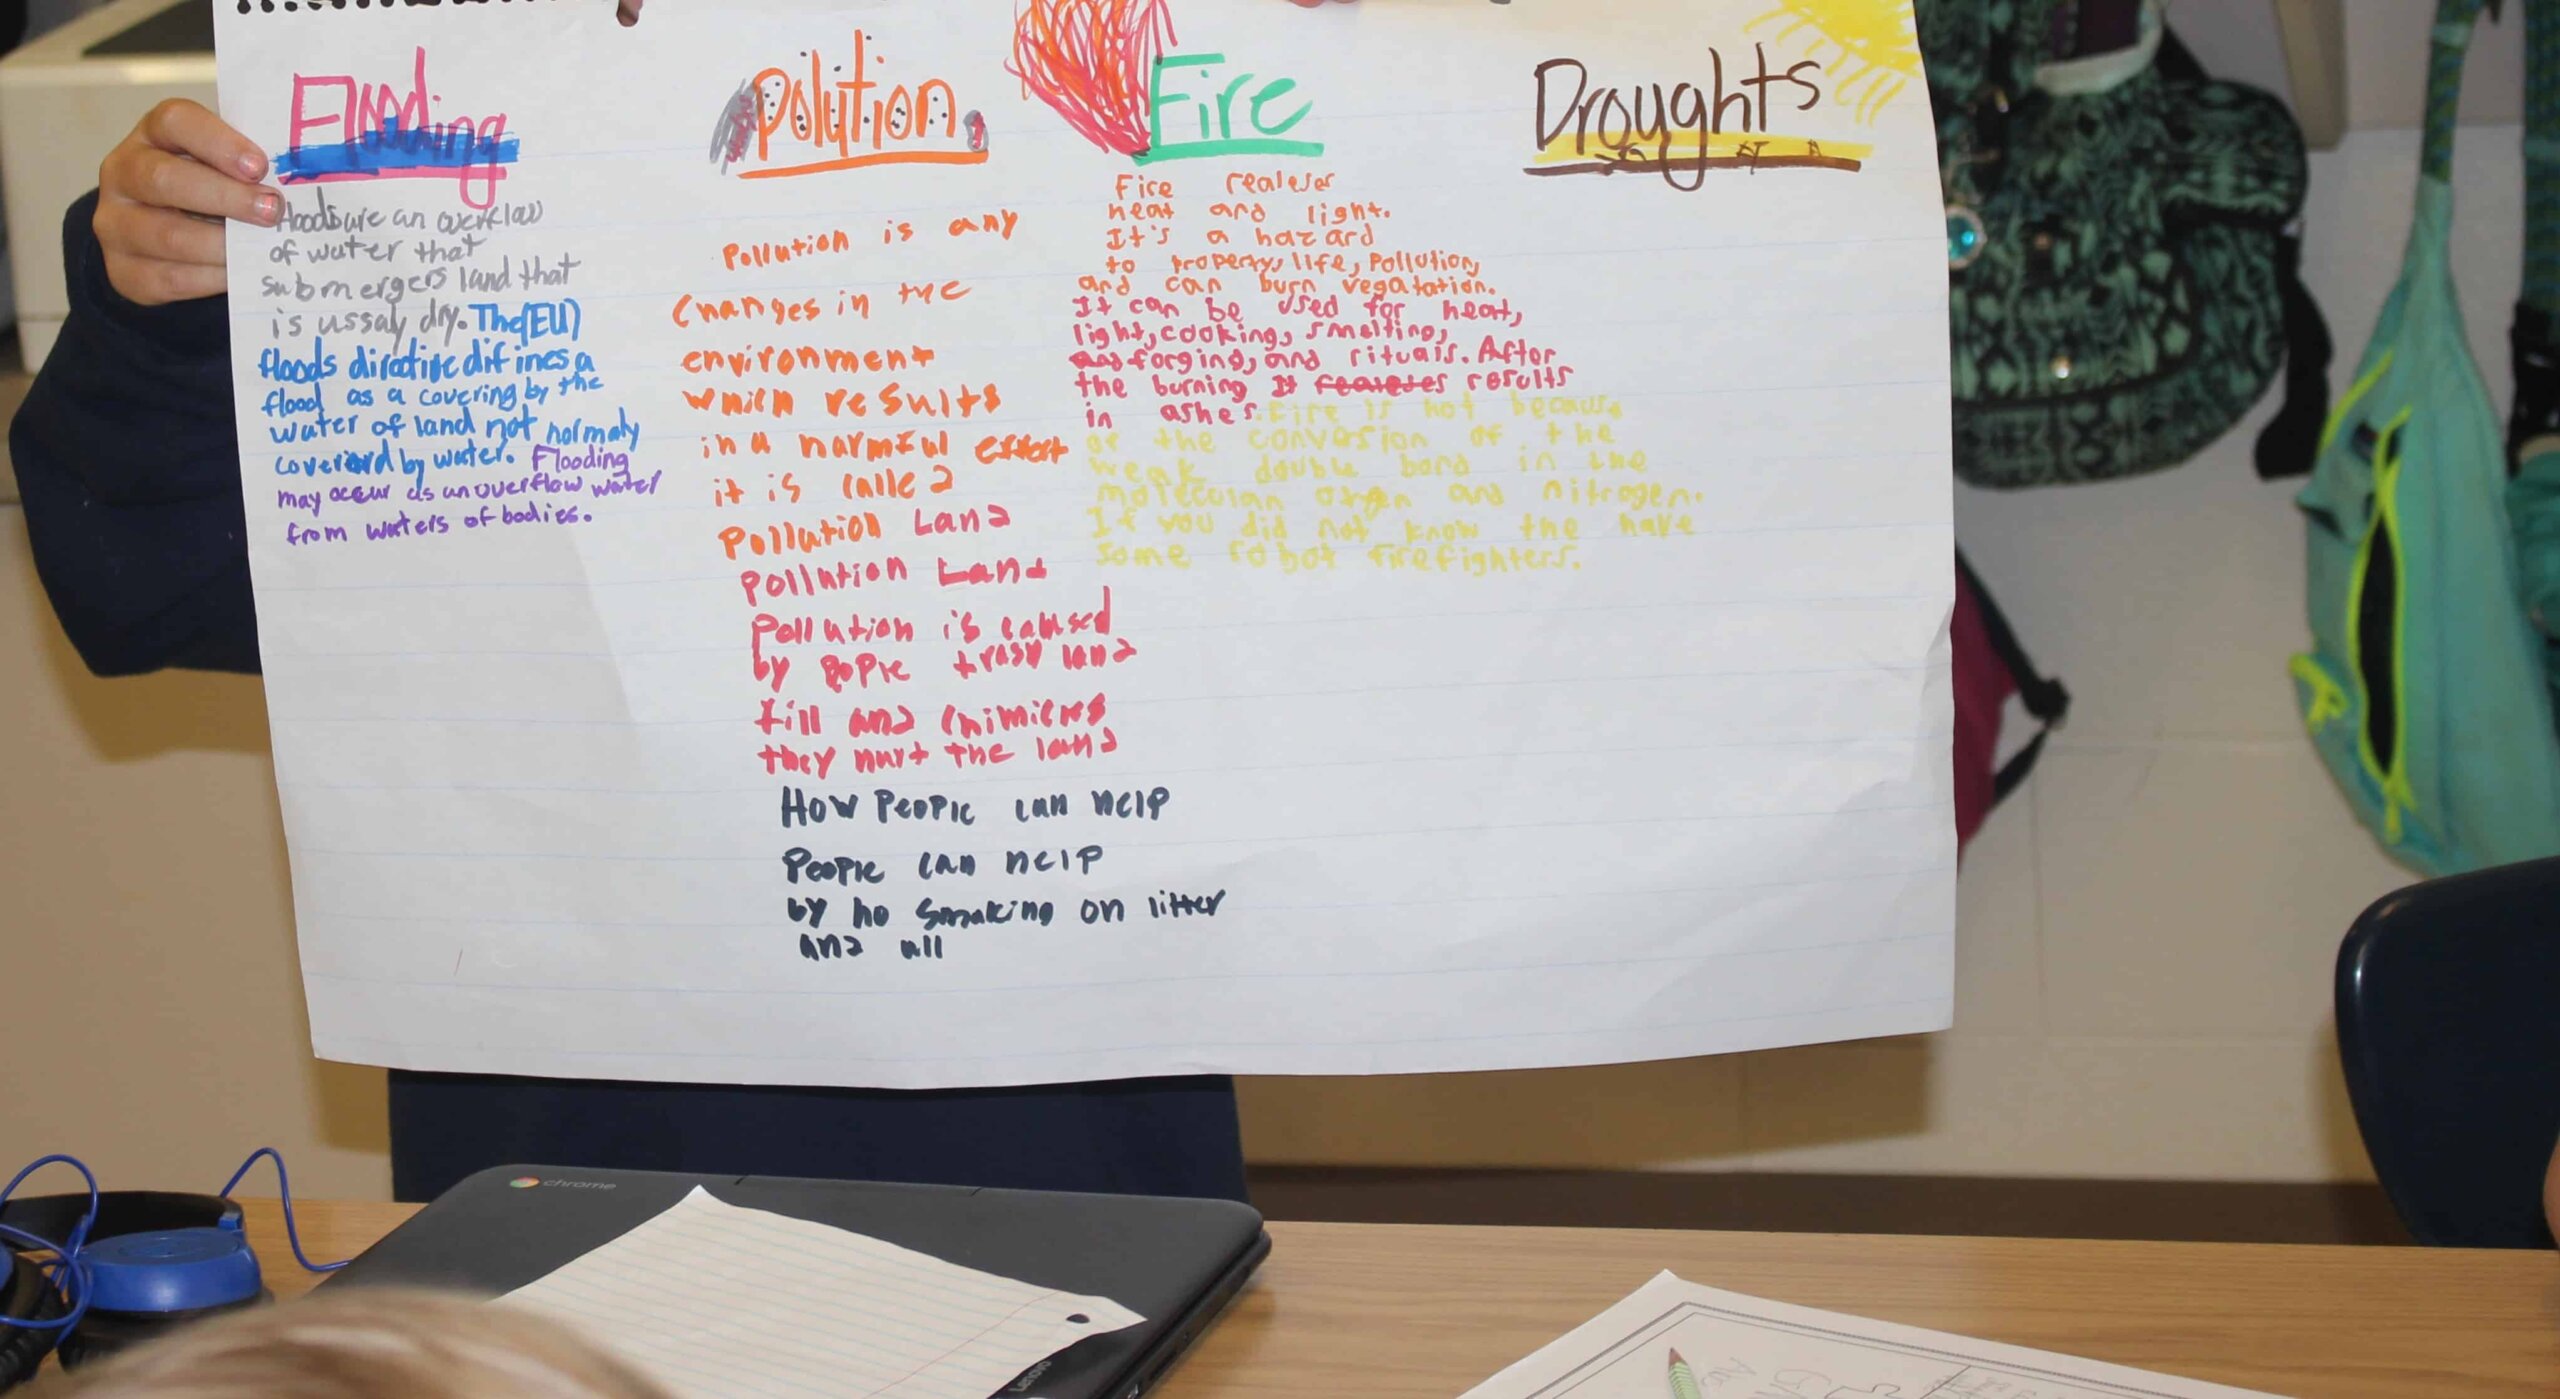 Flooding
floods are an overflow
of water that
submergers land that
is ussaly dry. The (EU)
floods dirative difines a
flood as a covering by the
water of land not normaly
covered by water. Flooding
may occur as an overflow water
from waters of bodies.
Polution
Pollution is any
changes in the
environment
which results
in a harmful effect
it is called
Pollution Land
Pollution Land
Pollution is caused
by pople trash land
fill and chimicles
they hurt the land
How People can help
People can help
by no smoking on litter
and all
Fire
Fire realeses
heat and light.
It's a hazard
to property, life, Pollution,
and can burn vegatation.
It can be used for heat,
light, cooking, smelting,
forging, and rituals. After
the burning It realeses results
in ashes. Fire is hot because
of the conversion of the
weak double bond in the
molecular oxygen and nitrogen.
If you did not know the have
some robot firefighters.
Droughts
chrome
Lenovo